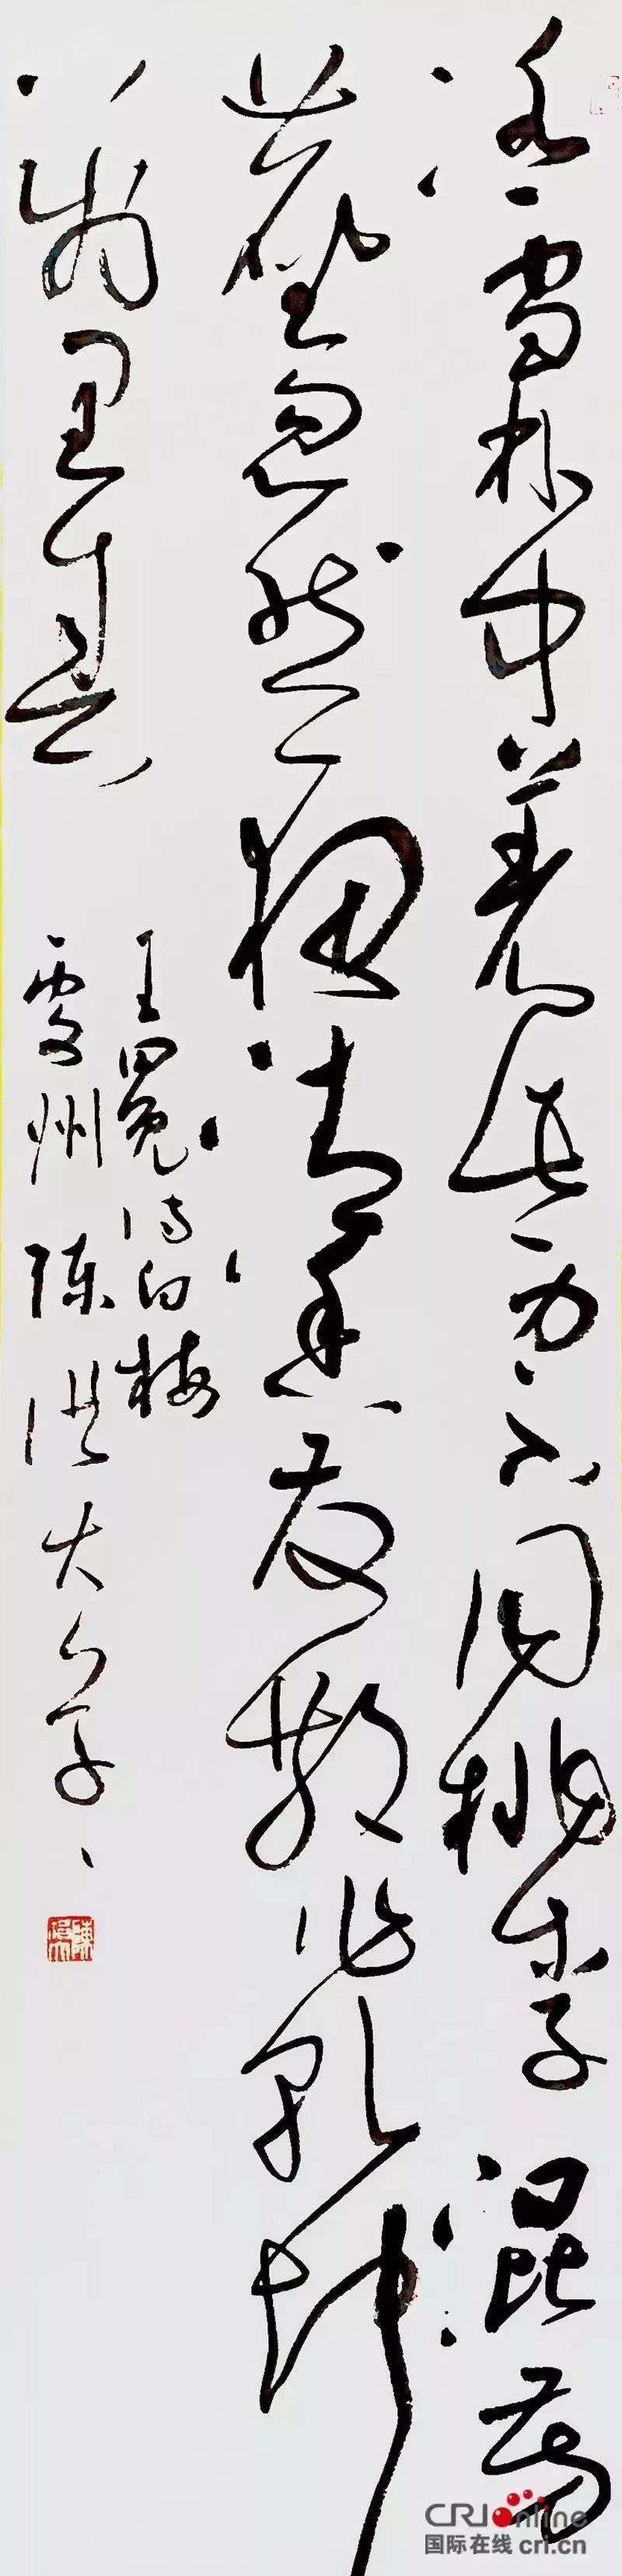 冰雪林中著此身不同桃李混芳
塵忽然一夜清香发散作乾坤
萬里春
王冕诗白梅
州陈
CRI Online
国际在线 cri.cn